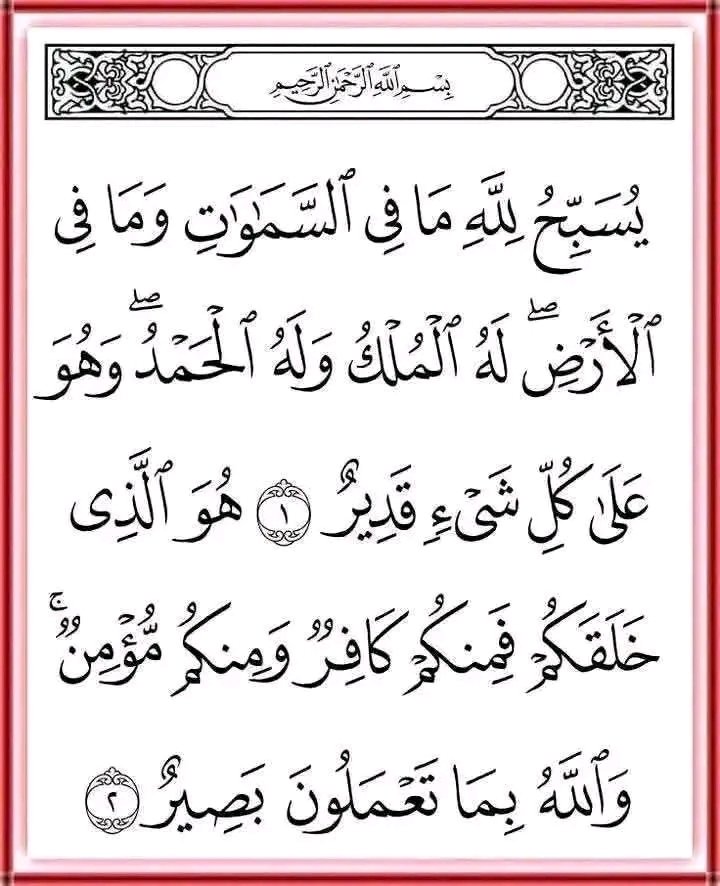 بِسْمِ ٱللَّهِ ٱلرَّحْمَٰنِ ٱلرَّحِيمِ
يُسَبِّحُ لِلَّهِ مَا فِى ٱلسَّمَٰوَٰتِ وَمَا فِى
ٱلْأَرْضِ ۖ لَهُ ٱلْمُلْكُ وَلَهُ ٱلْحَمْدُ ۖ وَهُوَ
عَلَىٰ كُلِّ شَىْءٍ قَدِيرٌ ١ هُوَ ٱلَّذِى
خَلَقَكُمْ فَمِنكُمْ كَافِرٌ وَمِنكُم مُّؤْمِنٌ ۚ
وَٱللَّهُ بِمَا تَعْمَلُونَ بَصِيرٌ ٢